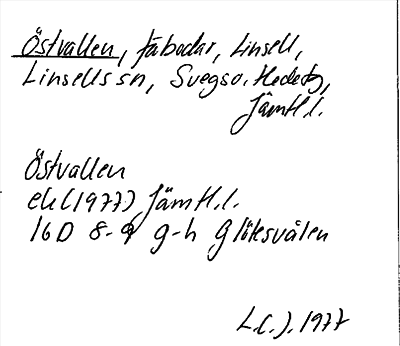 Östvallen, fäbodar, Linsell,
Linsells sn, Svegs o. Hedetg,
Jämtl.l.
Östvallen
ek (1977) Jämtl.l.
16D 8-9 g-h Glötesvålen
L.C.J. 1977